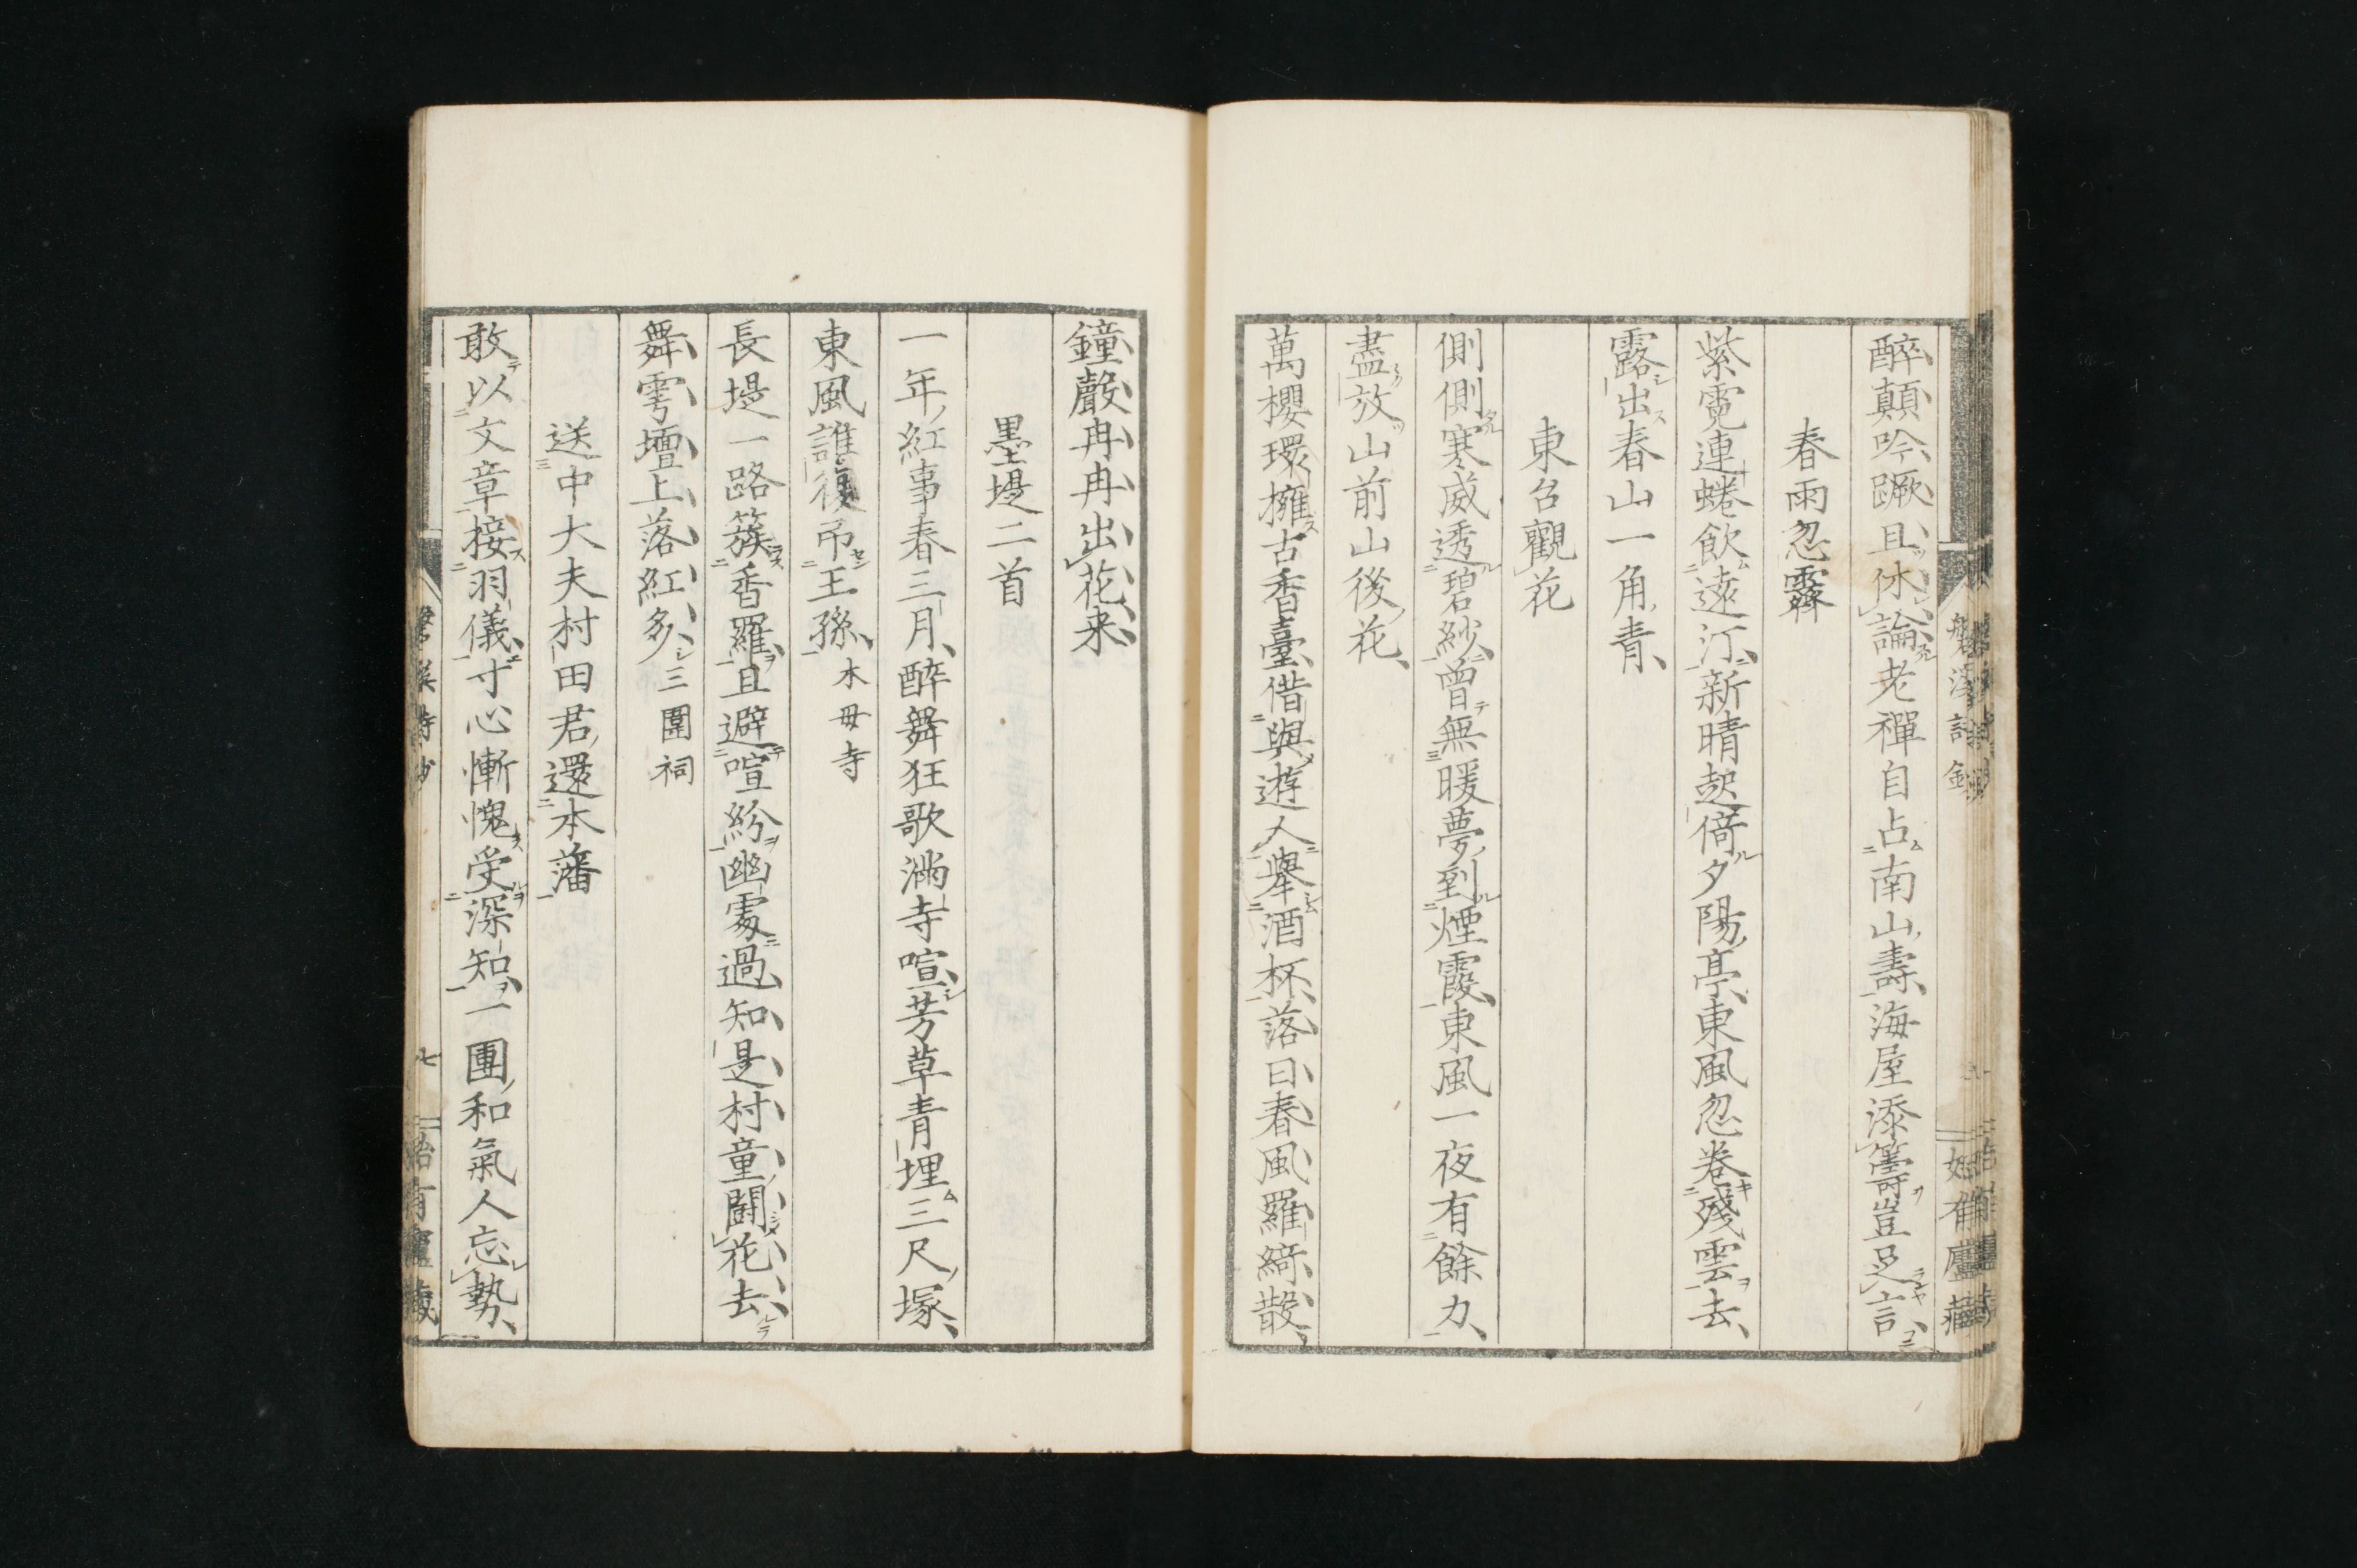 醉顛吟蹶且休論老禪自占南山壽海屋添籌豈足言
春雨忽霽
紫霓連蜷飲遠汀新晴起倚夕陽亭東風忽卷殘雲去
露出春山一角青
東台觀花
側側寒威透碧紗曾無暖夢到煙霞東風一夜有餘力
盡放山前山後花
萬櫻環擁古香臺借與遊人舉酒杯落日春風羅綺散
鐘聲冉冉出花来
墨堤二首
一年紅事春三月醉舞狂歌滿寺喧芳草青埋三尺塚
東風誰復弔王孫 木毋寺
長堤一路簇香羅且避喧紛幽處過知是村童鬭花去
舞雩壇上落紅多 三圍祠
送中大夫村田君還本藩
敢以文章接羽儀寸心慚愧受深知一團和氣人忘勢